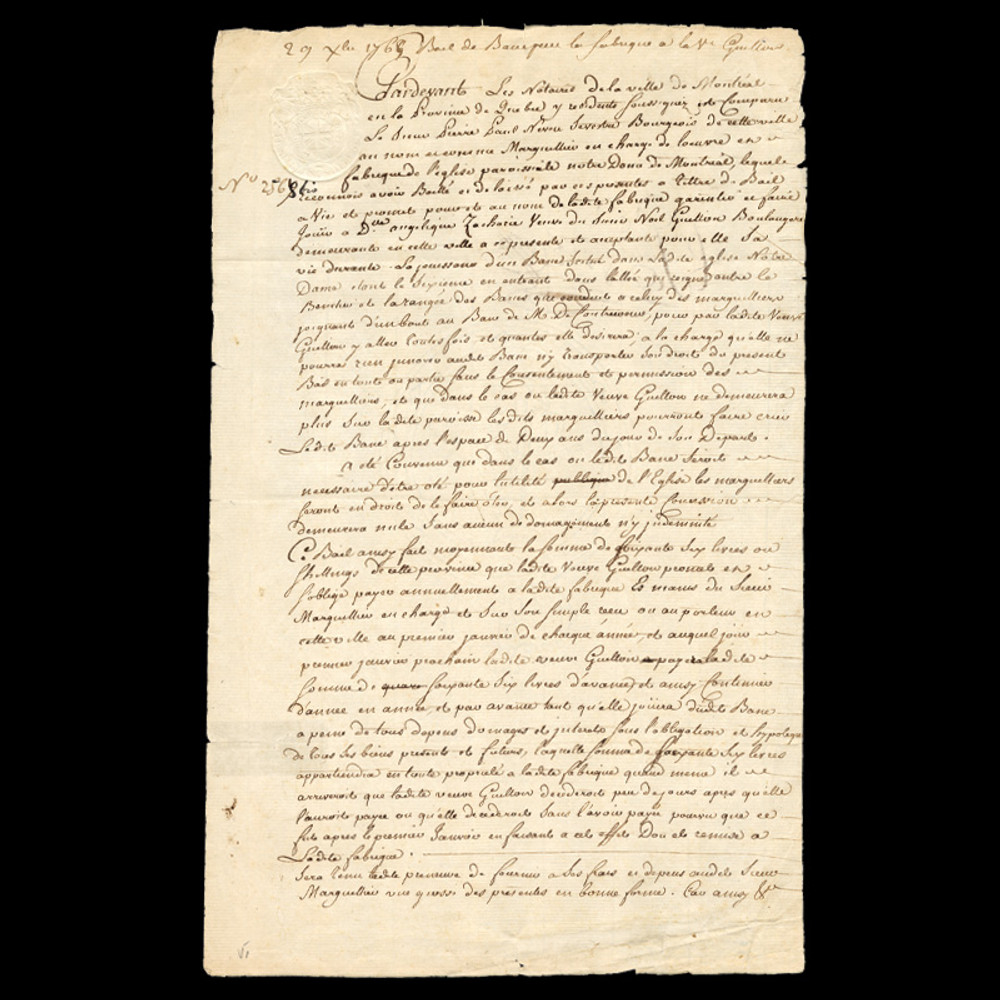 29 Xbre 1768 Bail de Banc par la fabrique a la Ve Guillon
Pardevant Les Notaires de la ville de Montréal
en la Province de Quebec y residents soussignez est Comparu
Le Sieur Pierre Paul Bourgeois de cette ville
au nom et comme Marguillier en charge de loeuvre et
fabrique de l'église paroissiale notre Dame de Montréal, lequel
No 256 bis reconnois avoir Baillé et delaissé par ces presentes a tittre de Bail
a Vie et promet pour et au nom de ladite fabrique garentir et faire
Jouir a Dme angelique Zacharie Veuve du Sieur Noël Guillon Boulanger
demeurante en cette ville a ce presente et acceptante pour elle Sa
vie durante. La jouissance d'un Banc scitué dans Ladite eglise Nôtre
Dame dont le Sixieme en entrant dans lallée qui reigne entre le
Banchu et la rangée des Bancs qui conduit a celuy des marguilliers
joignant d'un bout au Banc de M. De Contrecoeur, pour par ladite Veuve
Guillon y aller toutes fois et quantes elle desirera; a la charge qu'elle ne
pourra rien innover audit Banc n'y transporter son droit du present
Bail en tout ou partie sans le Consentement et permission des
marguilliers, et que dans le cas ou ladite Veuve Guillon ne demeurera
plus sur ladite paroisse lesdits marguilliers pourront faire crier
Ledit Banc après l'espace de Deux ans du jour de son Départ.
a été Convenu que dans le cas ou ledit Banc seroit
necessaire d'être oté pour lutilité publique de l'Eglise les marguilliers
seront en droit de le faire ôter, et alors la presente Concession
demeurera nulle sans aucun dedomagement n'y indemnité
Ce Bail ainsy fait moyennant la somme de soixante six livres ou
shillings de cette province que ladite Veuve Guillon promet et
s'oblige payer annuellement a ladite fabrique Es mains du Sieur
Marguillier en charge et sur son simple recu ou au porteur en
cette ville au premier janvier de chaque année, et auquel jour
premier janvier prochain ladite veuve Guillon payera ladite
somme de soixante six livres d'avance, et ainsy Continuer
d'année en année, et par avance tant qu'elle jouira dudit Banc
a peine de tous depens domages et interets sous l'obligation et hypoteque
de tous ses biens presents et futurs, laquelle somme de soixante six livres
appartiendra en toute proprieté a ladite fabrique quand meme il
arriveroit que ladite veuve Guillon decederoit peu de jours apres qu'elle
l'auroit payée ou qu'elle decederoit sans l'avoir payé pourvu que ce
fut apres le premier Janvier en faisant a cet effet Don et remise a
Ladite fabrique.
sera tenu ladite preneuse de fournir a ses frais et depens audit Sieur
Marguillier une grosse des presentes en bonne forme. Car ainsy &c